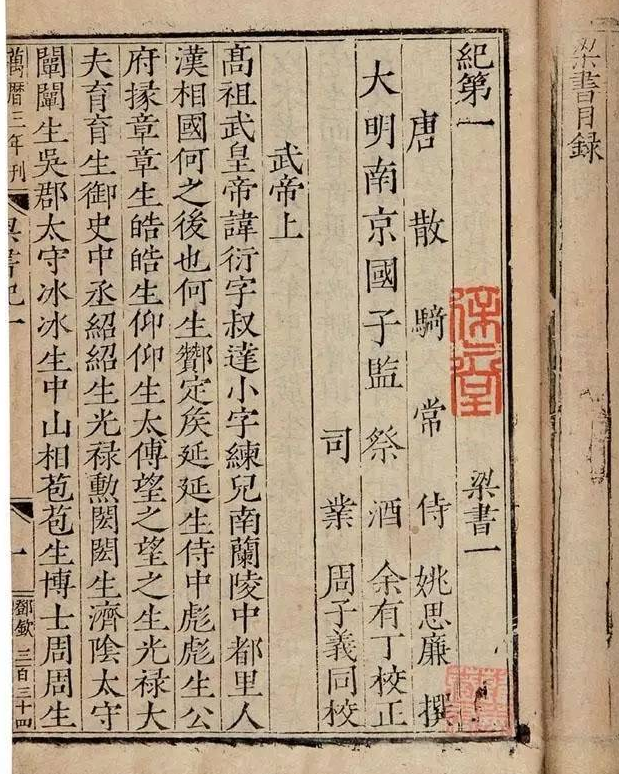 梁書目録
紀第一 梁書一
唐散騎常侍姚思廉撰
大明南京國子監祭酒余有丁校正
司業周子義同校
武帝上
髙祖武皇帝諱衍字叔達小字練兒南蘭陵中都里人
漢相國何之後也何生酇定矦延延生侍中彪彪生公
府掾章章生皓皓生仰仰生太傅望之望之生光禄大
夫育育生御史中丞紹紹生光禄勲閎閎生濟隂太守
闡闡生吳郡太守冰冰生中山相苞苞生博士周周生
萬暦三年刊 梁書紀一 一 鄧欽 三百三十四